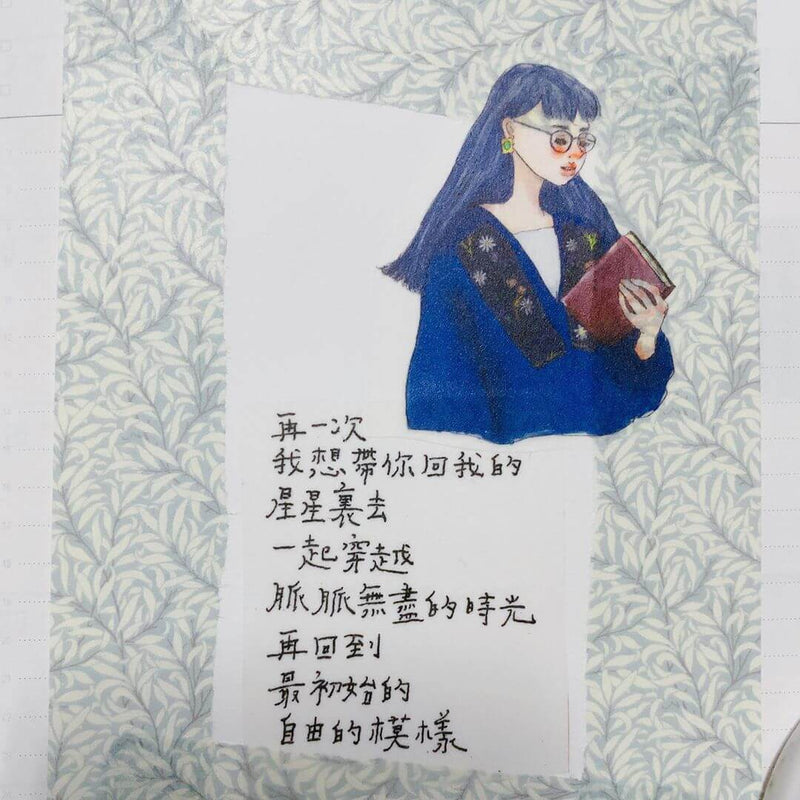 再一次
我想帶你回我的
星星裏去
一起穿越
脈脈無盡的時光
再回到
最初始的
自由的模樣